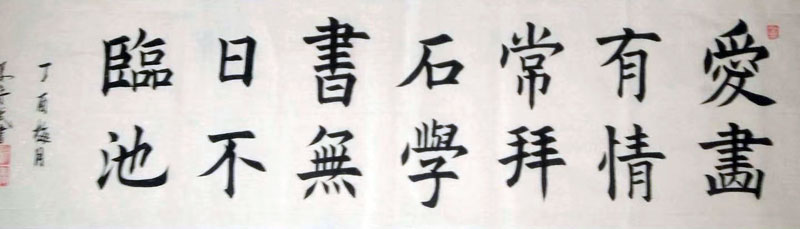 愛畫
有情
常拜
石學
書無
日不
臨池
丁酉梅月